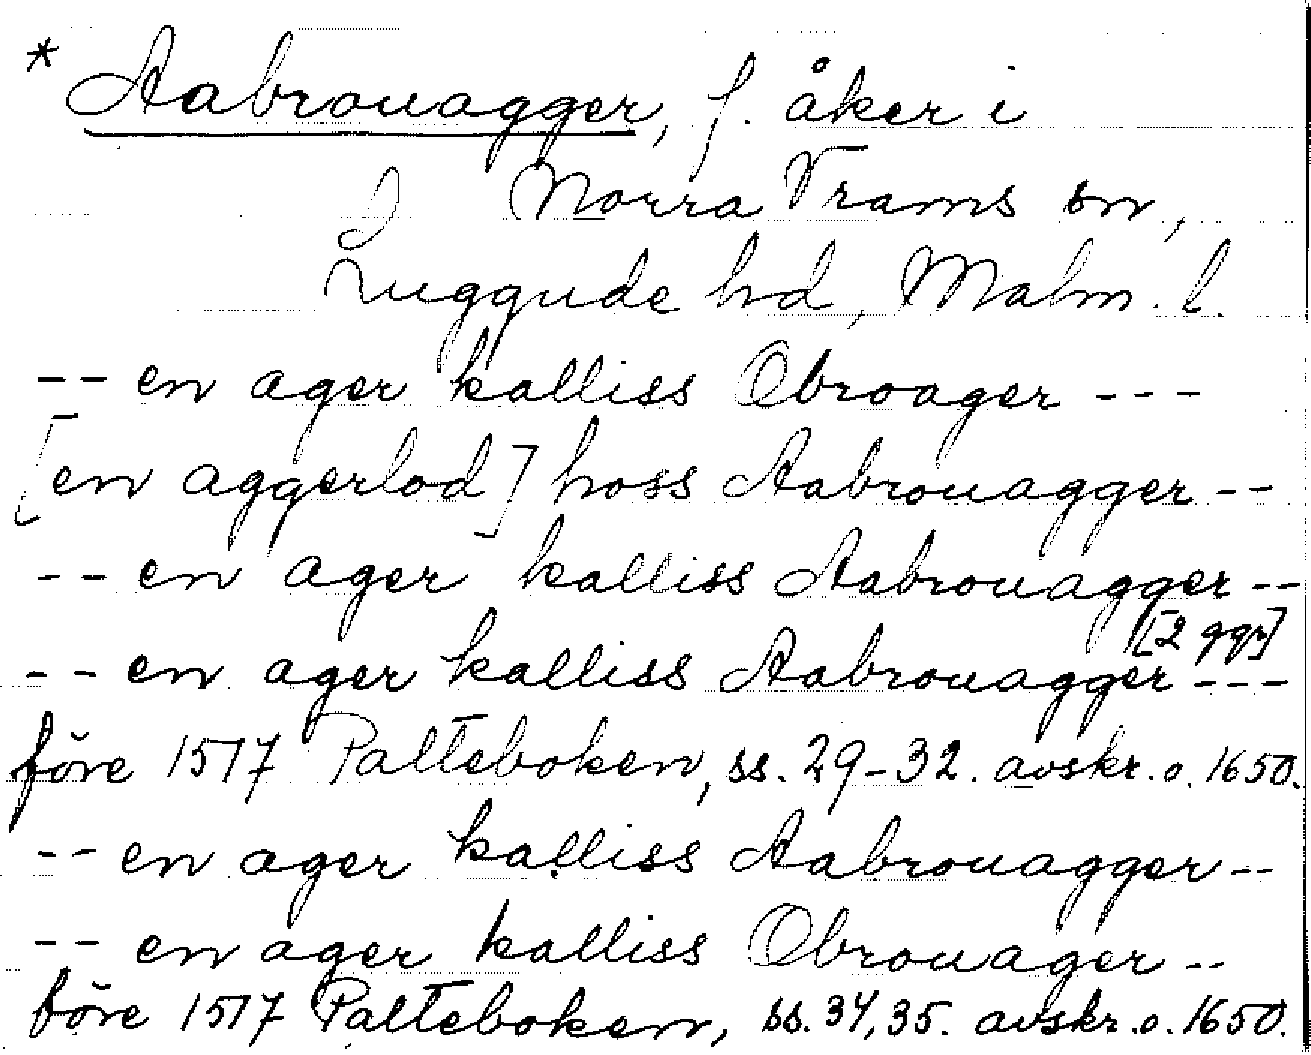 * Aabrouagger, f. åker i
Norra Vrams sn,
Luggude hd, Malm. l.
-- en ager kalliss Obroager ---
[en aggerlod] hoss Aabrouagger --
-- en ager kalliss Aabrouagger --
[2 ggr]
-- en ager kalliss Aabrouagger ---
före 1517 Palteboken, ss. 29-32. avskr. o. 1650.
-- en ager kalliss Aabrouagger --
-- en ager kalliss Obrouager --
före 1517 Palteboken, ss. 34, 35. avskr. o. 1650.